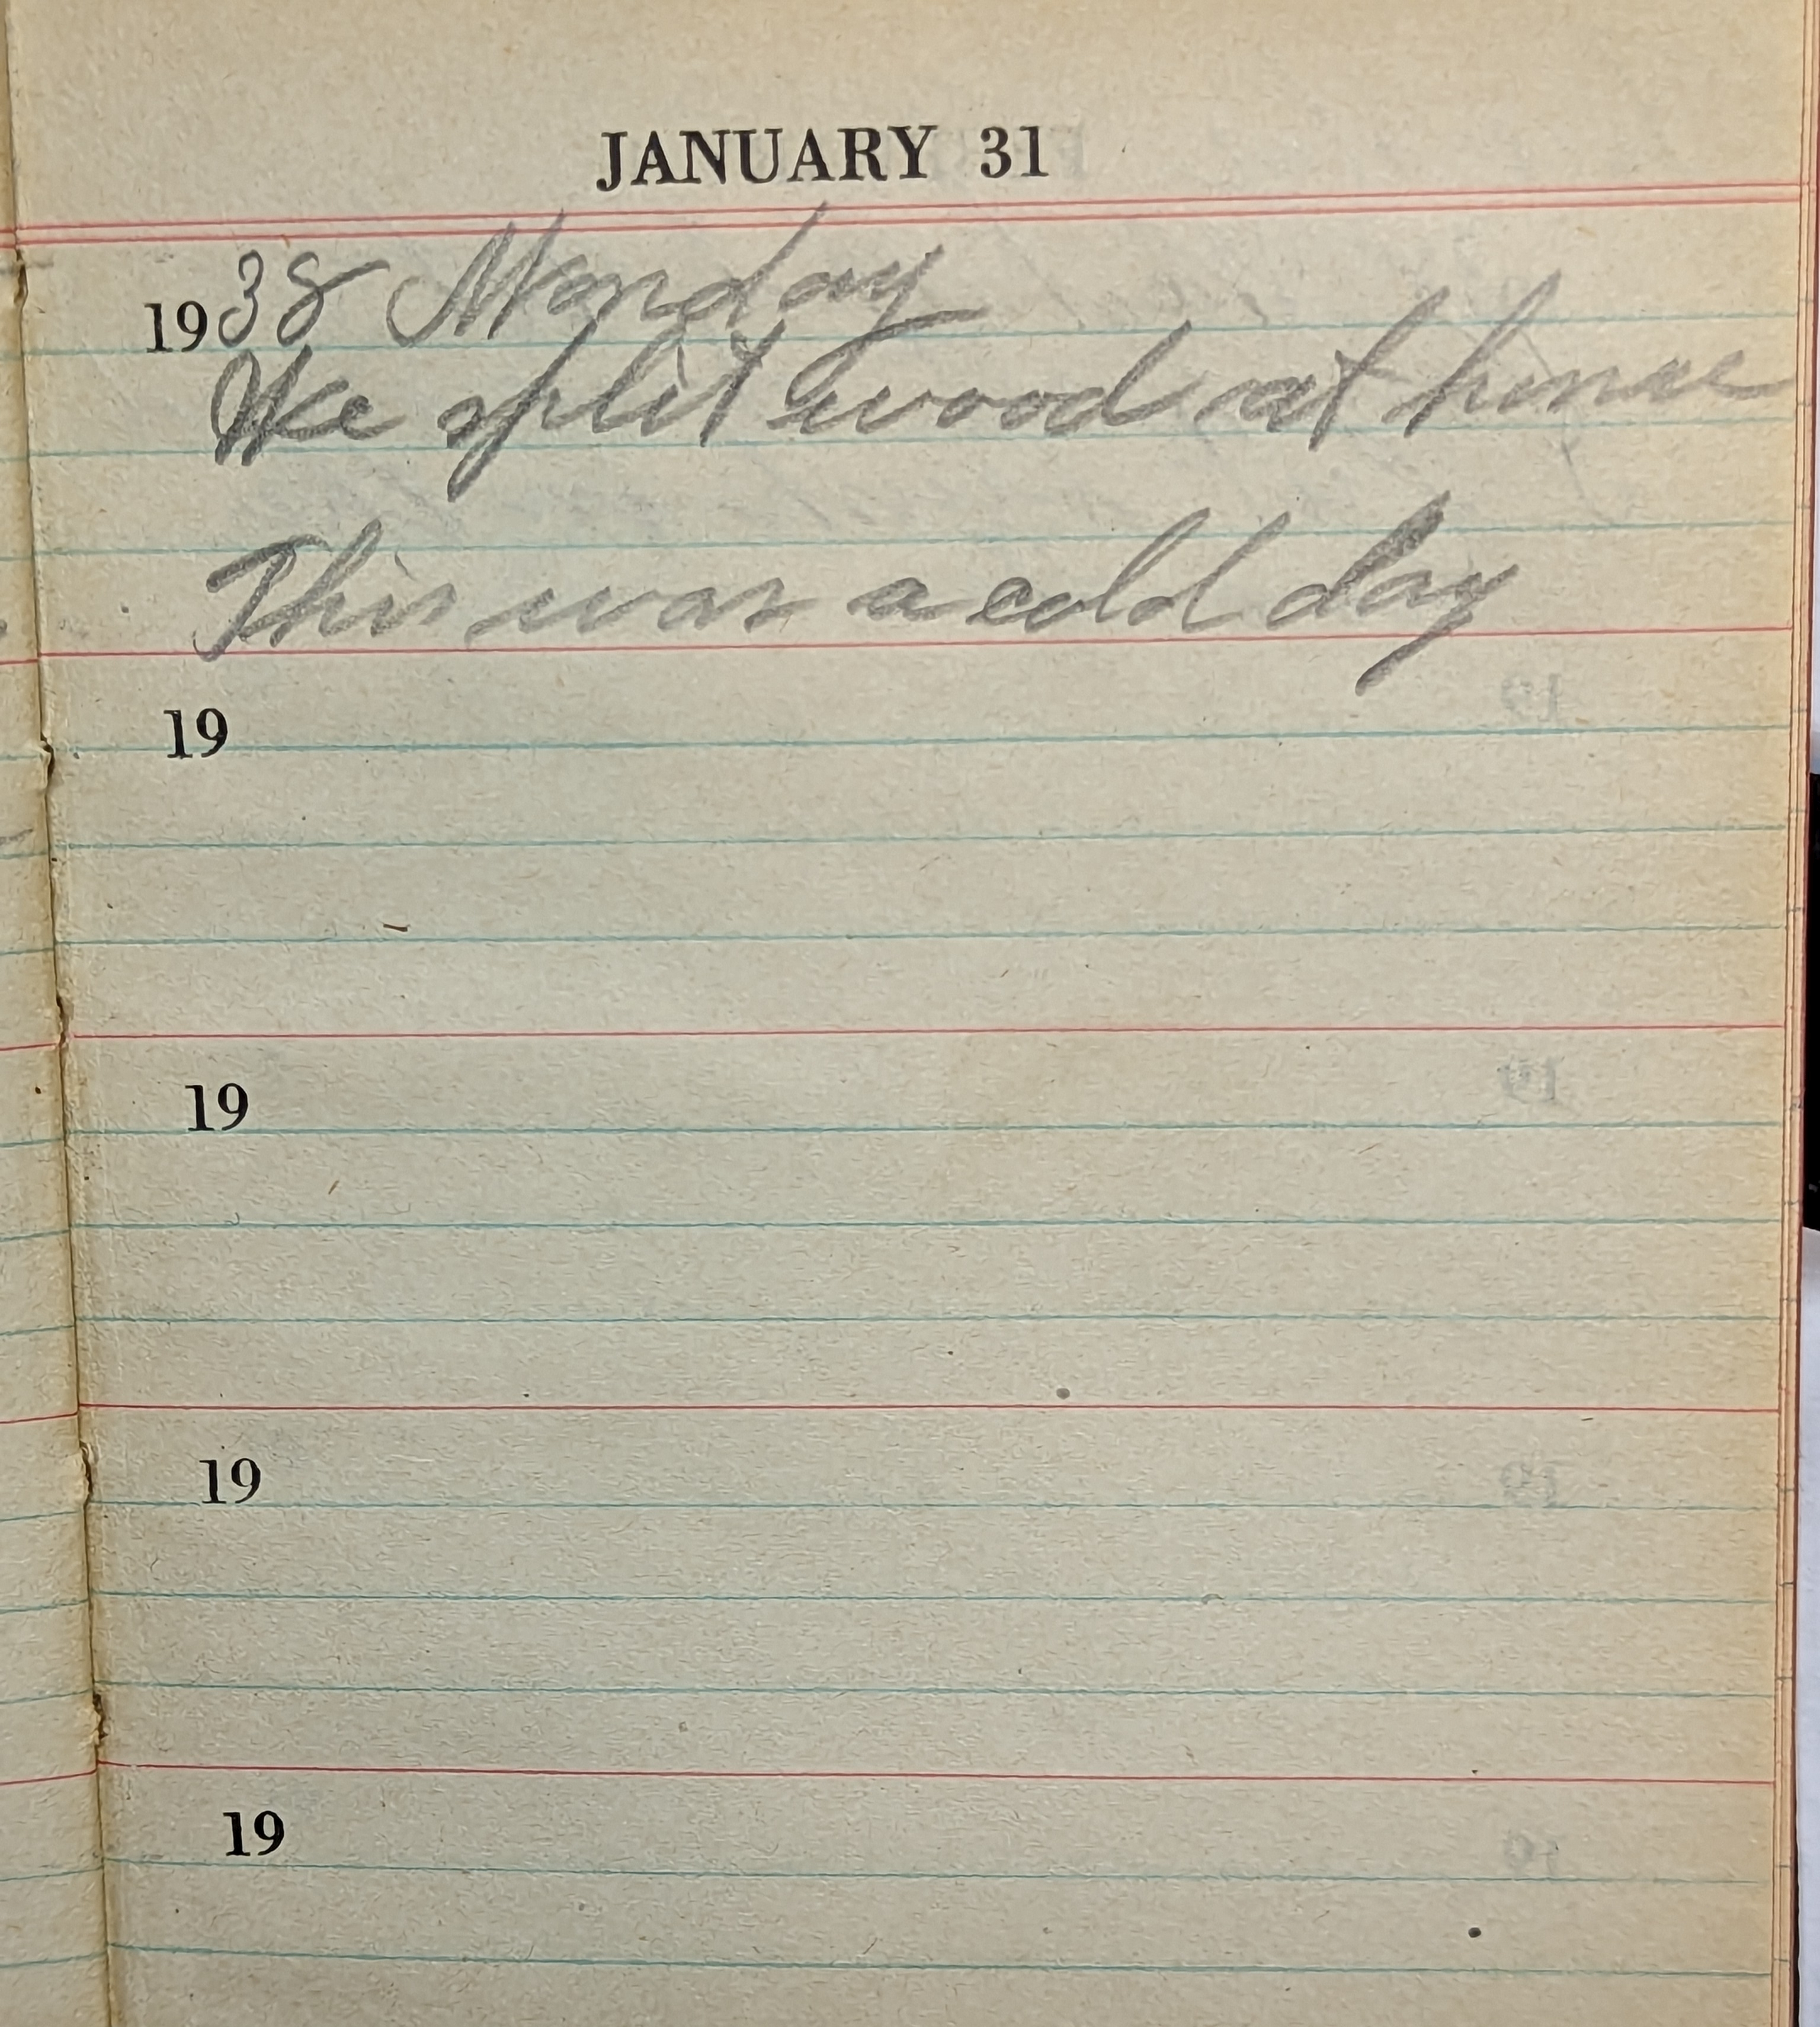 JANUARY 31
1938 Monday
We split wood at home
This was a cold day
19
19
19
19